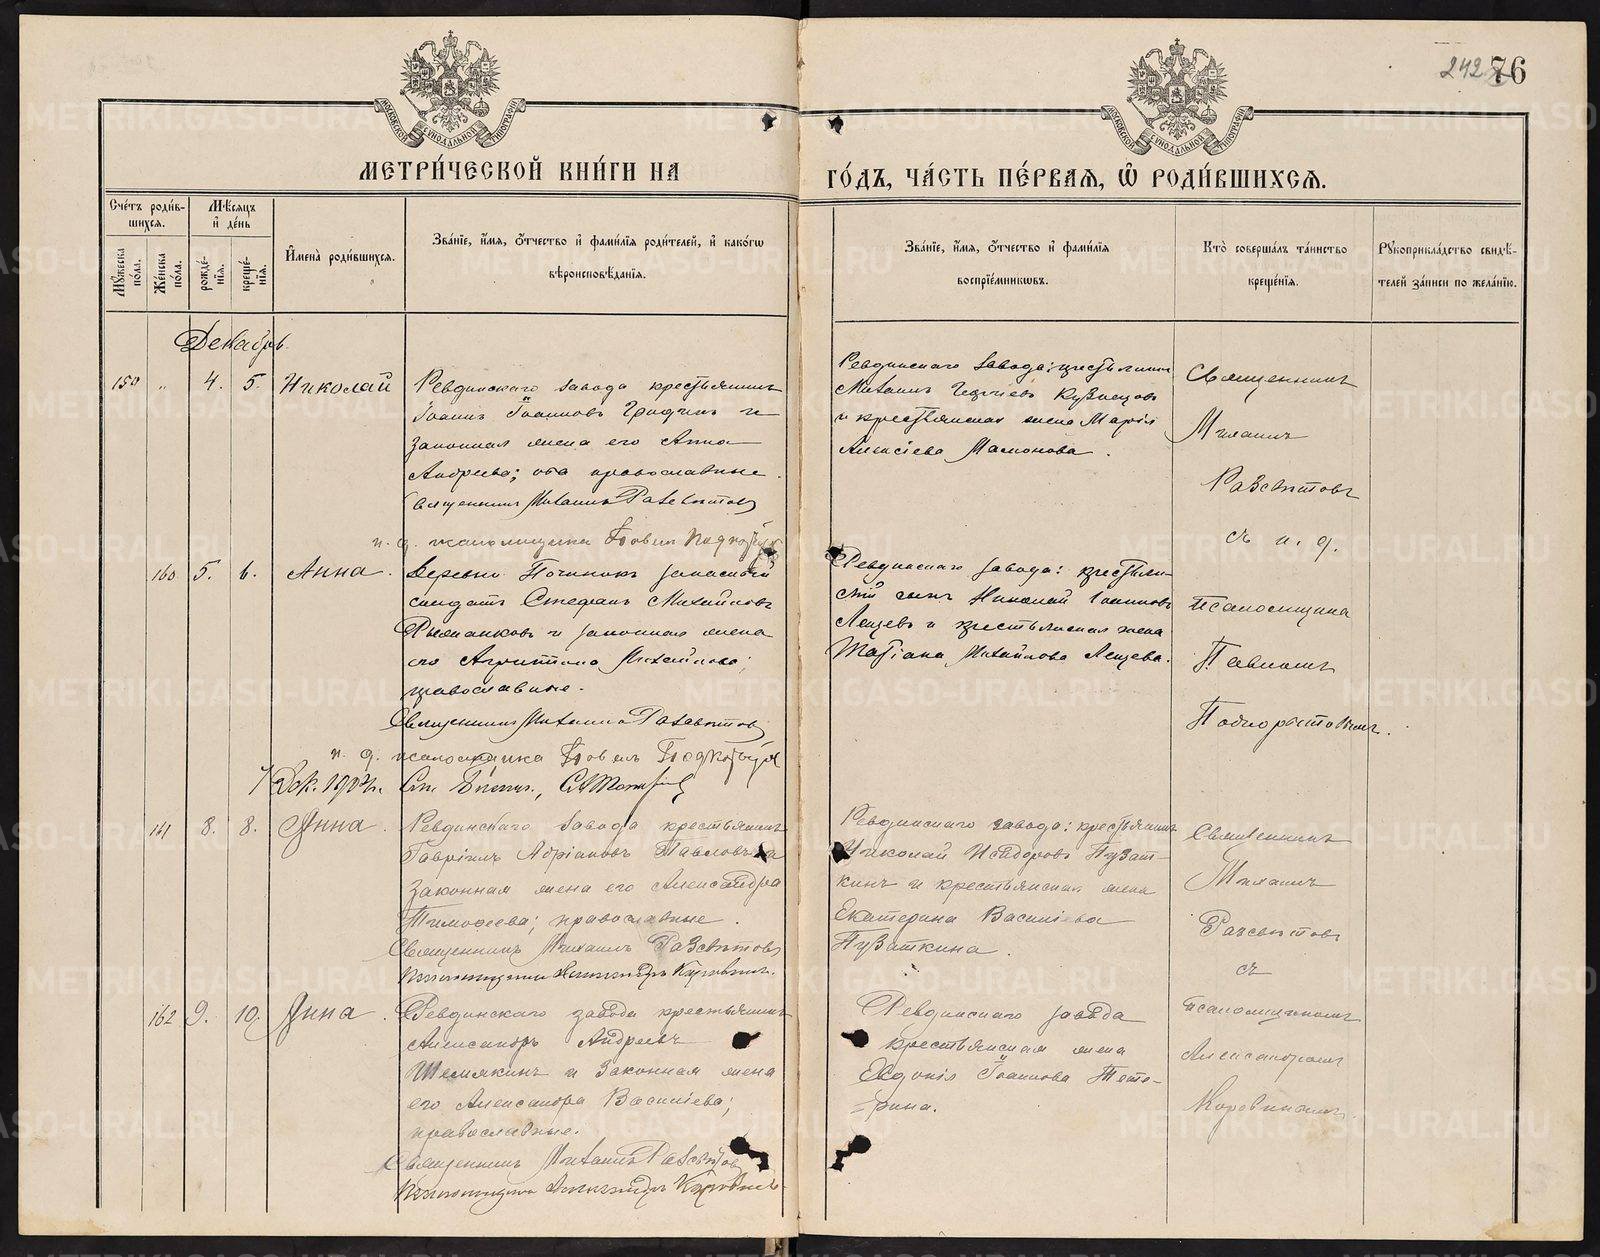 242 76
МОСКОВСКОЙ СУНОДАЛЬНОЙ ТИПОГРАФІИ
МОСКОВСКОЙ СУНОДАЛЬНОЙ ТИПОГРАФІИ
МЕТРИ́ЧЕСКОЙ КНИ́ГИ НА
ГО́ДЪ, ЧА́СТЬ ПЕ́РВАѦ, Ѽ РОДИ́ВШИХСѦ.
Сче́тъ роди́в-
шихсѧ.
Мꙋ́жеска по́ла.
Же́нска по́ла.
Мѣ́сѧцъ
и҆ де́нь
рожде́-
нїѧ.
креще́-
нїѧ.
И҆мена̀ роди́вшихсѧ.
Зва́нїе, и҆́мѧ, ѻ҆́тчество и҆ фами́лїѧ роди́телей, и҆ како́гѡ
вѣроисповѣ́данїѧ.
Зва́нїе, и҆́мѧ, ѻ҆́тчество и҆ фами́лїѧ
воспрїе́мникѡвъ.
Кто̀ соверша́лъ та́инство
креще́нїѧ.
Рꙋкоприкла́дство свидѣ́-
телей за́писи по жела́нїю.
Декабрь.
150 „ 4. 5. Николай
Ревдинскаго завода крестьянинъ
Іоаннъ Іоанновъ и
законная жена его Анна
Андреева; оба православные.
Священникъ Михаилъ Разсвѣтовъ
и. д. псаломщика Павелъ
Ревдинскаго завода: крестьянинъ
Михаилъ Георгіевъ Кузнецовъ
и крестьянская жена Марія
Алексіева Мамонова.
Священникъ
Михаилъ
Разсвѣтовъ
съ и. д.
псаломщика
Павломъ
160 5. 6. Анна.
Деревни Починокъ запасной
солдатъ Стефанъ Михайловъ
и законная жена
его Михайлова;
православные.
Священникъ Михаилъ Разсвѣтовъ
и. д. псаломщика Павелъ
7 Дек. 1907 г.
Ревдинскаго завода: крестьян-
скій сынъ Николай Іоанновъ
Лещевъ и крестьянская жена
Татіана Михайлова Лещева.
161 8. 8. Анна.
Ревдинскаго завода крестьянинъ
Гавріилъ Адріановъ Павловъ и
законная жена его Александра
Тимофеева; православные.
Священникъ Михаилъ Разсвѣтовъ
Псаломщикъ Александръ Коровинъ.
Ревдинскаго завода: крестьянинъ
Николай Исидоровъ Пузат-
кинъ и крестьянская жена
Екатерина Василіева
Пузаткина.
Священникъ
Михаилъ
Разсвѣтовъ
съ
псаломщикомъ
Александромъ
Коровинымъ.
162 9. 10. Анна.
Ревдинскаго завода крестьянинъ
Александръ Андреевъ
Шемякинъ и законная жена
его Александра Василіева;
православные.
Священникъ Михаилъ Разсвѣтовъ
Псаломщикъ Александръ Коровинъ.
Ревдинскаго завода
крестьянская жена
Евдокія Іоаннова Тете-
рина.
METRIKI.GASO-URAL.RU